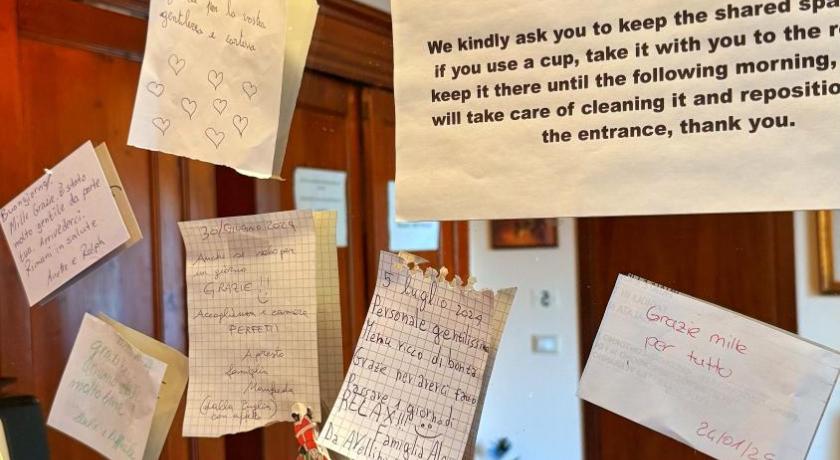 per la vostra
gentilezza e cortesia
We kindly ask you to keep the shared
if you use a cup, take it with you to the
keep it there until the following morning,
will take care of cleaning it and
the entrance, thank you.
Buongiorno!
Mille Grazie, è stato
molto gentile da parte
tua. Arrivederci
Rimani in salute
Anette e Ralph
30/GIUGNO 2024
Anche se solo per
un giorno
GRAZIE!!!
Accoglienza e camere
PERFETTI
A presto
famiglia
(dalla Puglia)
con affetto
5 luglio 2024
Personale gentilissimo
Menù ricco di bontà
Grazie per averci fatto
passare 1 giorno di
RELAX!!!
Famiglia
Da Avellino
Grazie mille
per tutto
grazie
molto bene